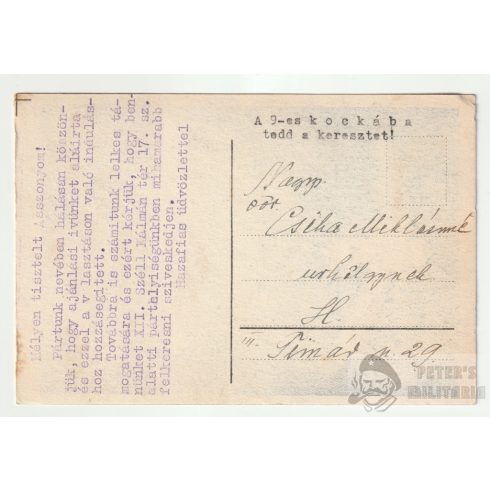 Mélyen tisztelt Asszonyom!
Pártunk nevében hálásan köszön-
jük, hogy ajánlási ivünket aláírta
és ezzel a v lasztáson való indulás-
hoz hozzásegített.
Továbbra is számítunk lelkes tá-
mogatására és ezért kérjük, hogy ben-
nünket XII. Széll Kálmán tér 17. sz.
alatti pártelyiségünkben mihamarabb
felkeresni sziveskedjen.
Hazafias üdvözlettel
A 9-es kockába
tedd a keresztet!
Nagys
Csiha Miklósné
urhölgynek
H.
III. Timád u. 29.
PETER'S
MILITARIA